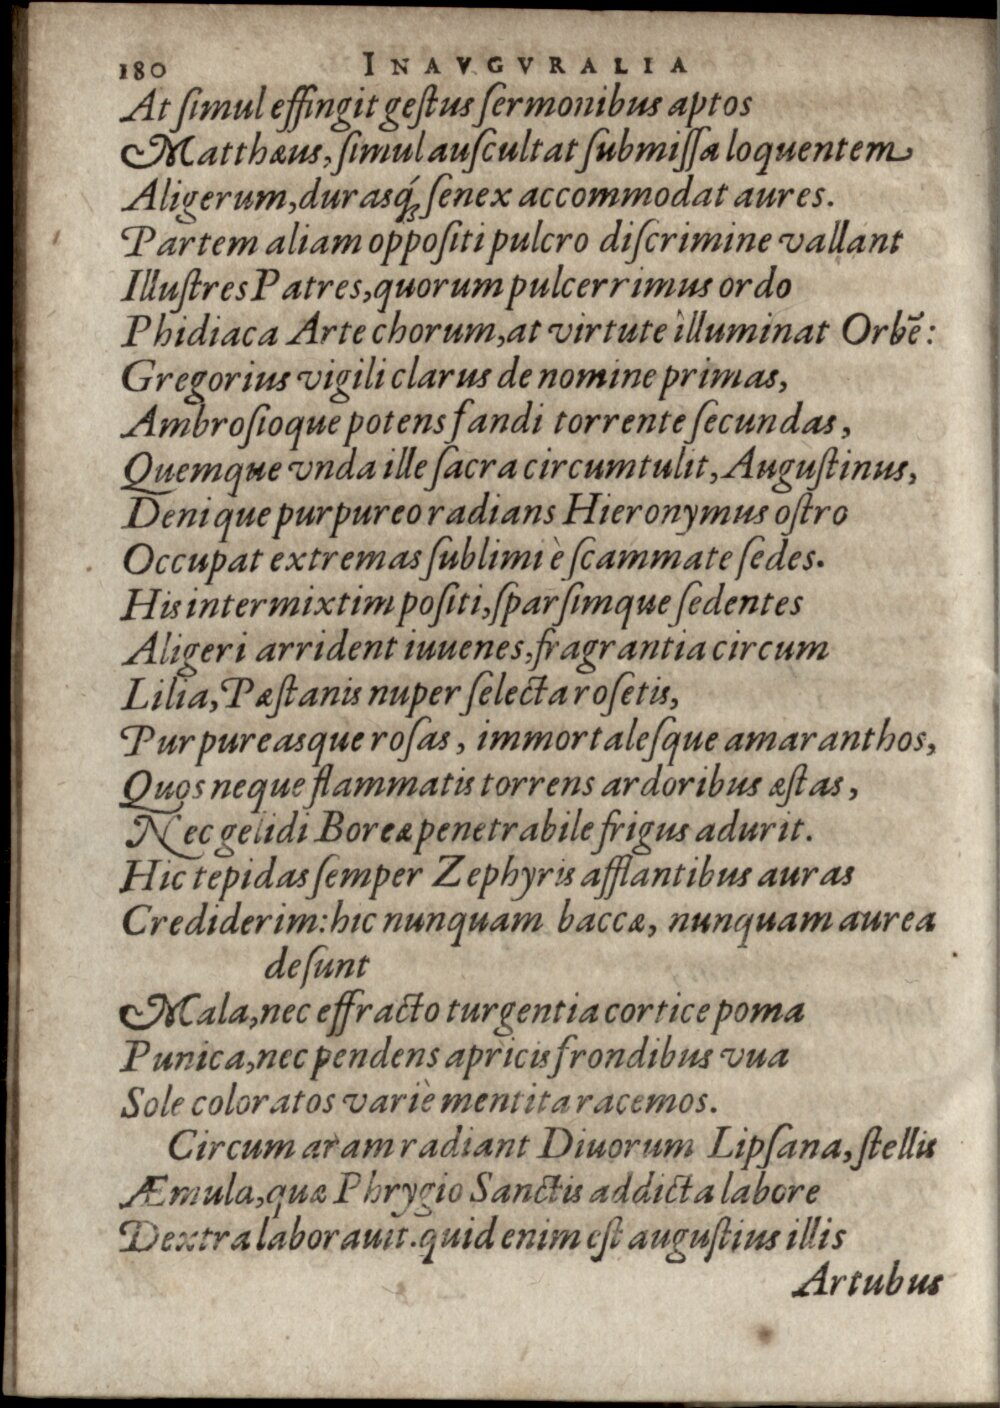 180 INAVGVRALIA
At ſimul effingit geſtus ſermonibus aptos
Matthæus, ſimul auſcultat ſubmiſſa loquentem
Aligerum, durasq́ꝫ ſenex accommodat aures.
Partem aliam oppoſiti pulcro diſcrimine vallant
Illuſtres Patres, quorum pulcerrimus ordo
Phidiaca Arte chorum, at virtute illuminat Orbē:
Gregorius vigili clarus de nomine primas,
Ambroſioque potens fandi torrente ſecundas,
Quemque vnda ille ſacra circumtulit, Auguſtinus,
Denique purpureo radians Hieronymus oſtro
Occupat extremas ſublimi è ſcammate ſedes.
His intermixtim poſiti, ſparſimque ſedentes
Aligeri arrident iuuenes, fragrantia circum
Lilia, Pæſtanis nuper ſelecta roſetis,
Purpureasque roſas, immortaleſque amaranthos,
Quos neque flammatis torrens ardoribus æſtas,
Nec gelidi Boreæ penetrabile frigus adurit.
Hic tepidas ſemper Zephyris afflantibus auras
Crediderim: hic nunquam baccæ, nunquam aurea
deſunt
Mala, nec effracto turgentia cortice poma
Punica, nec pendens apricis frondibus vua
Sole coloratos variè mentita racemos.
Circum aram radiant Diuorum Lipſana, ſtellis
Æmula, quæ Phrygio Sanctis addicta labore
Dextra laborauit. quid enim eſt auguſtius illis
Artubus